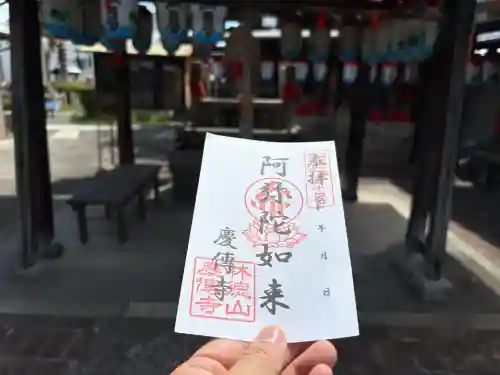 奉拝
年 月 日
阿弥陀如来
慶傳寺
林徳山
慶傳寺